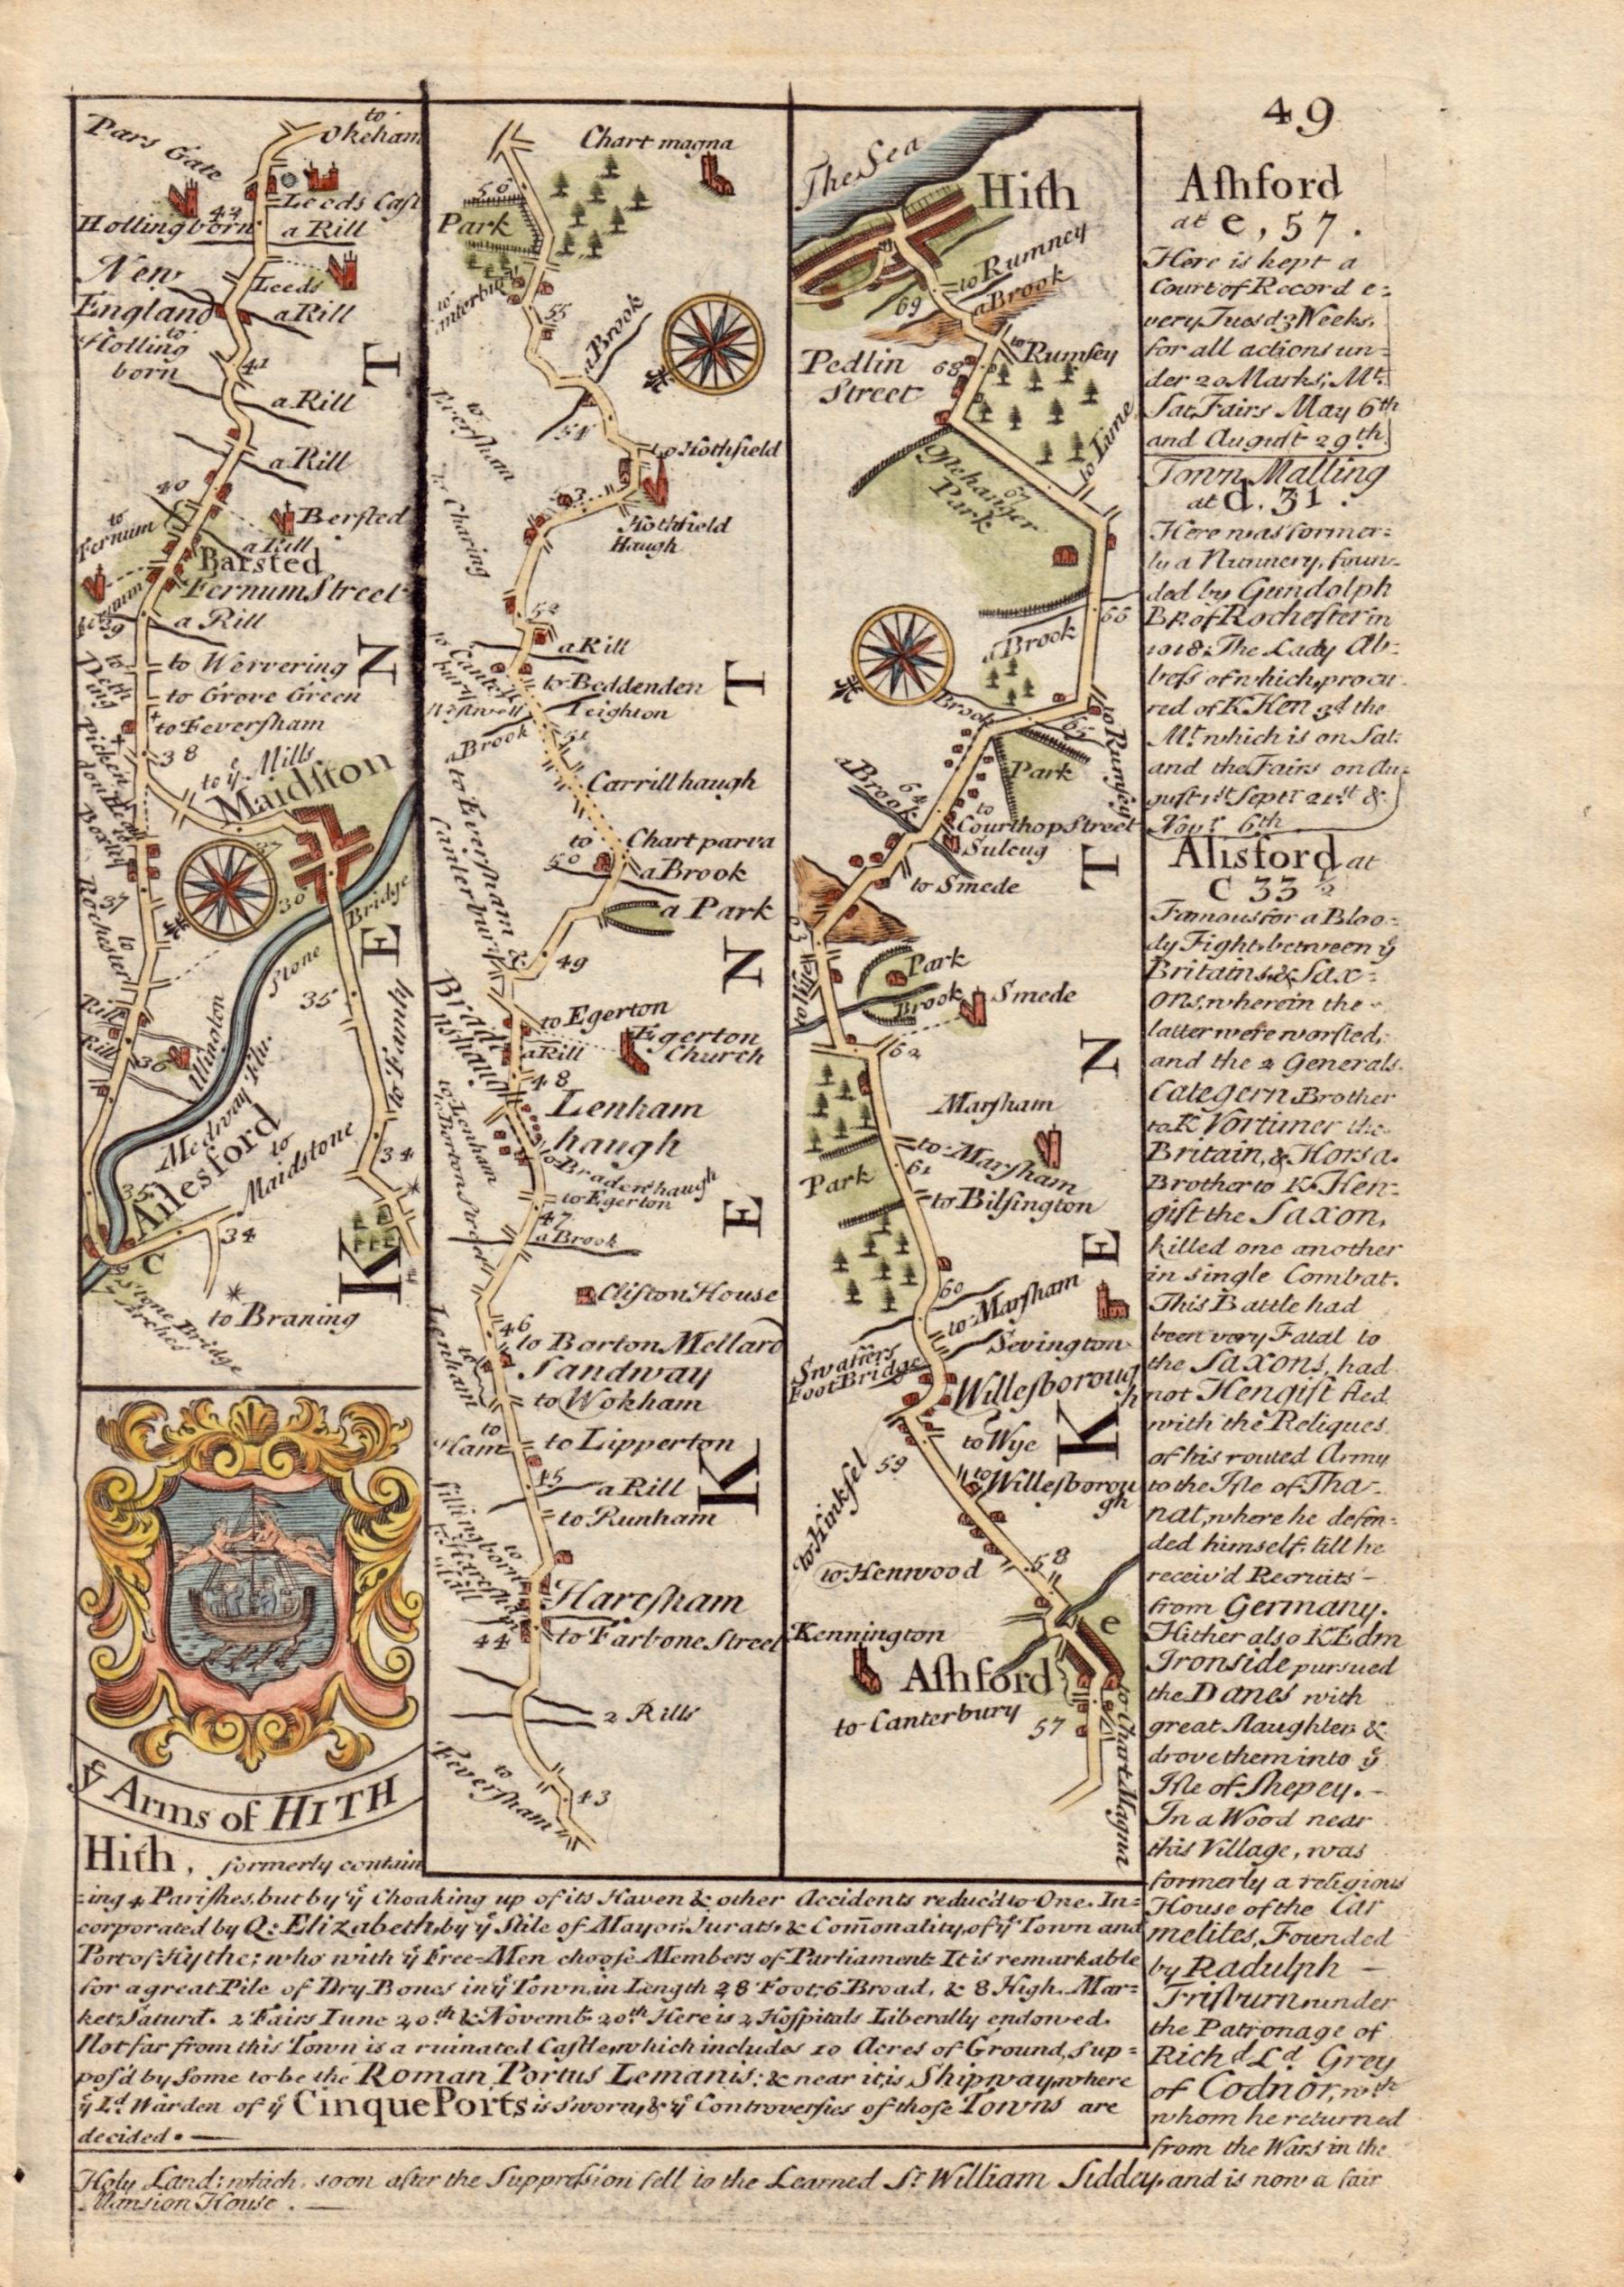 49
to Okeham
Pars Gate
Leeds Cast
42
Hollingborn
a Rill
New
England
Leeds
a Rill
to
Holling
born
41
a Rill
a Rill
40
to
Fernum
Bersted
a Rill
Barsted
Fernum Street
39
a Rill
to Wervering
to Grove Green
to Feversham
to
Deth
ing
38
to yͤ Mills
Maidſton
37
Boxly
37
36
Bridge
Stone
Rochester
to
35
Rill
Rill
36
Allington
Medway Flu.
to Famly
34
35
Ailesford
to
Maidstone
34
C
Stone Bridge
Arches
to Braning
KENT
yͤ Arms of HITH
Chart magna
56
Park
55
a Brook
54
to
Everſham
to Hothfield
53
Hothfield
Haugh
to Charing
52
a Rill
to
Canter
bury
Westwell
to Beddenden
Leighton
51
a Brook
Carrill haugh
to Everſham &
Canterbury
to
Chart parva
50
a Brook
a Park
49
to Egerton
Egerton
Church
a Rill
48
Lenham
haugh
to Lenham
to Borton Street
to Bradenhaugh
to Egerton
47
a Brook
Cliſton House
46
to Borton Mellard
Sandway
to
Lenham
to Wokham
to
Ham
to Lipperton
45
a Rill
to Runham
to
Hareſham
44
to Farbone Street
2 Rills
to
Feverſham
43
KENT
The Sea
Hith
to Rumney
69
a Brook
to
Rumſey
Pedlin
Street
68
to Lime
Oſtehanger
67
Park
66
a Brook
Brook
65
to Rumſey
Park
a Brook
64
to
Courthop Street
Suleug
to Smede
63
to Wye
Park
Brook
Smede
62
Marſham
to Marſham
61
Park
to Bilſington
60
to Marſham
Sevington
Swatfers
Foot Bridge
Willeſboroug
h
to Wye
59
to
Willeſborou
gh
to Kinkſel
to Henwood
58
Kennington
e
Aſhford
to Canterbury
57
to Chart Magna
KENT
Aſhford
at e, 57.
Here is kept a
Court of Record e=
very Tueſd 3 Weeks,
for all actions un=
der 20 Marks; Mᵗ.
Sat. Fairs May 6ᵗʰ
and Auguſt 29ᵗʰ.
Town Malling
at d. 31.
Here was former=
ly a Nunnery, foun=
ded by Gundolph
Bᴾ. of Rocheſter in
1018: The Lady Ab=
beſs of which, procu=
red of K. Hen 3ᵈ the
Mᵗ. which is on Sat:
and the Fairs on Au=
guſt 1ˢᵗ Septʳ 21ˢᵗ &
Novʳ 6ᵗʰ
Alisford at
C 33 ½
Famous for a Bloo=
dy Fight between yͤ
Britains & Sax=
ons, wherein the
latter were worſted,
and the 2 Generals
Categern Brother
to K Vortimer the
Britain, & Horsa.
Brother to K. Hen=
giſt the Saxon,
killed one another
in single Combat.
This Battle had
been very Fatal to
the Saxons, had
not Hengiſt fled
with the Reliques
of his routed Army
to the Iſle of Tha=
nat, where he defen=
ded himself, till he
receiv'd Recruits –
from Germany.
Hither also K Edm
Ironside pursued
the Danes with
great ſlaughter, &
drove them into yͤ
Iſle of Shepey. –
In a Wood near
this Village, was
formerly a religious
House of the Car
melites, Founded
by Radulph –
Friſburn under
the Patronage of
Richᵈ Lᵈ Grey
of Codnor, wᵗʰ
whom he returned
from the Wars in the
Hith, formerly contain
=ing 4 Pariſhes, but by yͤ Choaking up of its Haven & other Accidents reduc'd to One. In=
corporated by Q: Elizabeth, by yͤ Stile of Mayor, Jurats, & Com̄onality, of yͤ Town and
Port of Hythe; who with yͤ Free-Men chooſe Members of Parliament. It is remarkable
for a great Pile of Dry Bones in yͤ Town, in Length 28 Foot, 6 Broad, & 8 High. Mar=
ket Saturd. 2 Fairs Iune 20ᵗʰ & Novemb. 20ᵗʰ Here is 2 Hoſpitals Liberally endowed.
Not far from this Town is a ruinated Caſtle, which includes 10 Acres of Ground, Sup=
pos'd by Some to be the Roman Portus Lemanis; & near it, is Shipway, where
yͤ Lᵈ Warden of yͤ Cinque Ports is Sworn, & yͤ Controverſies of those Towns are
decided. –
Holy Land; which, soon after the Suppreſsion fell to the Learned Sʳ William Siddey, and is now a fair
Mansion House. –